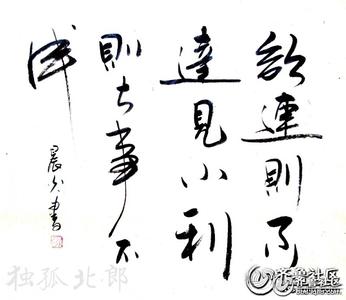 欲速則不
達見小利
則大事不
成
晨 書
独孤北郎
社区